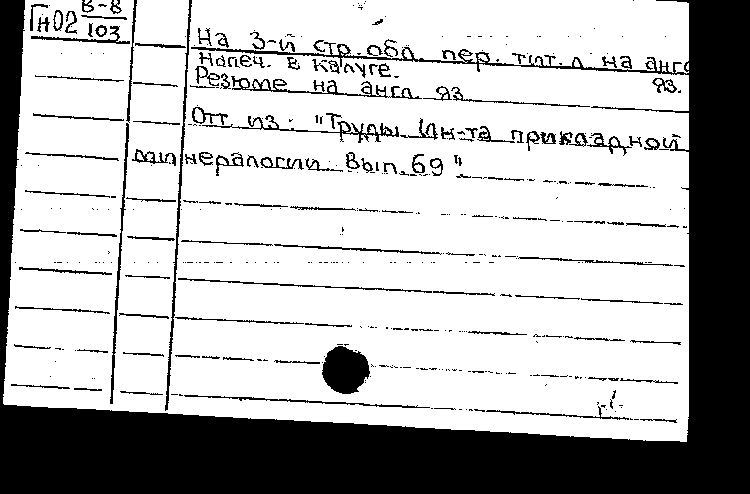 Гн02 В-8
103
На 3-й стр. обл. пер. тит. л. на англ
Напеч. в Калуге. яз.
Резюме на англ. яз.
Отт. из: "Труды Ин-та прикладной
минералогии. Вып. 69".